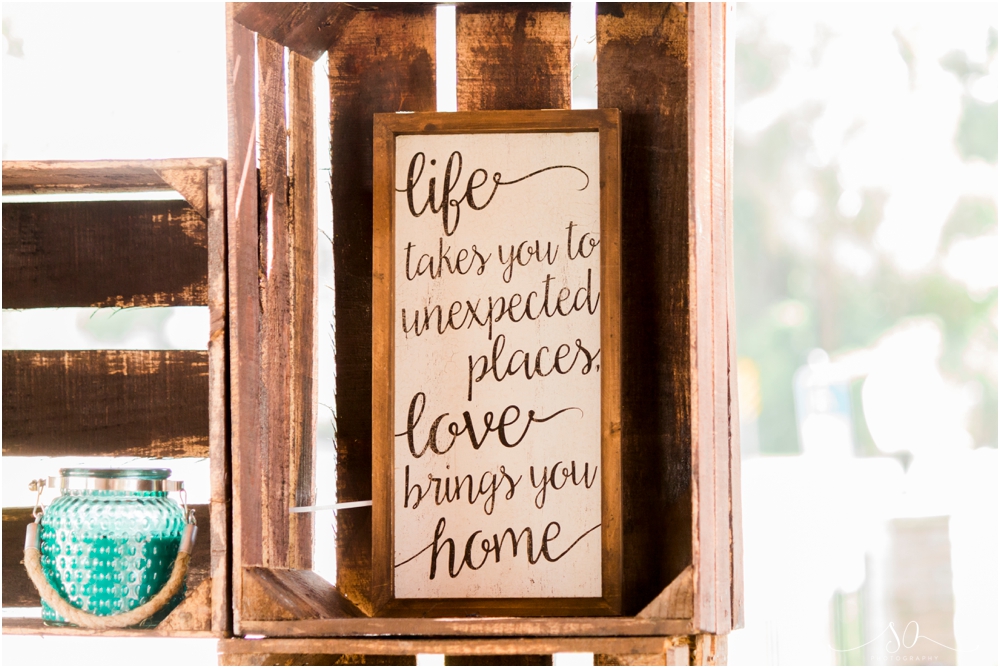 life
takes you to
unexpected
places,
love
brings you
home
SO
PHOTOGRAPHY